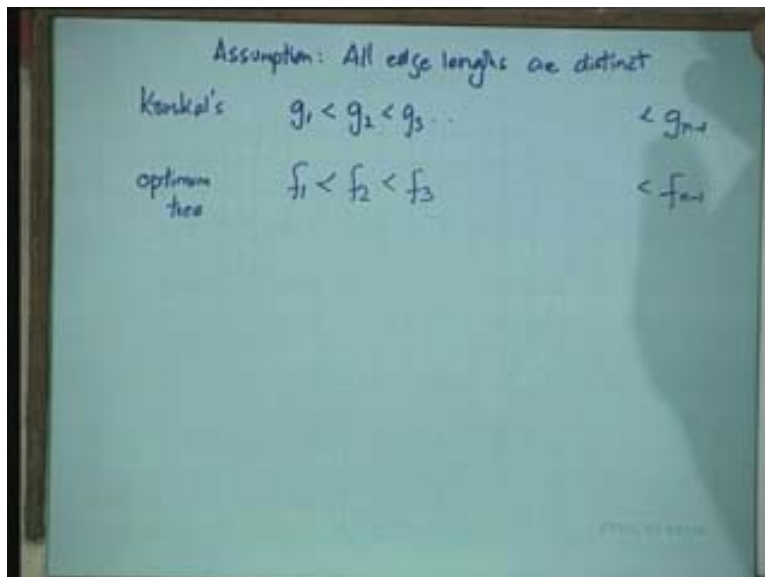 Assumption: All edge lengths are distinct
Kruskal's g₁ < g₂ < g₃ .. < gₙ₋₁
optimum f₁ < f₂ < f₃ < fₙ₋₁
tree